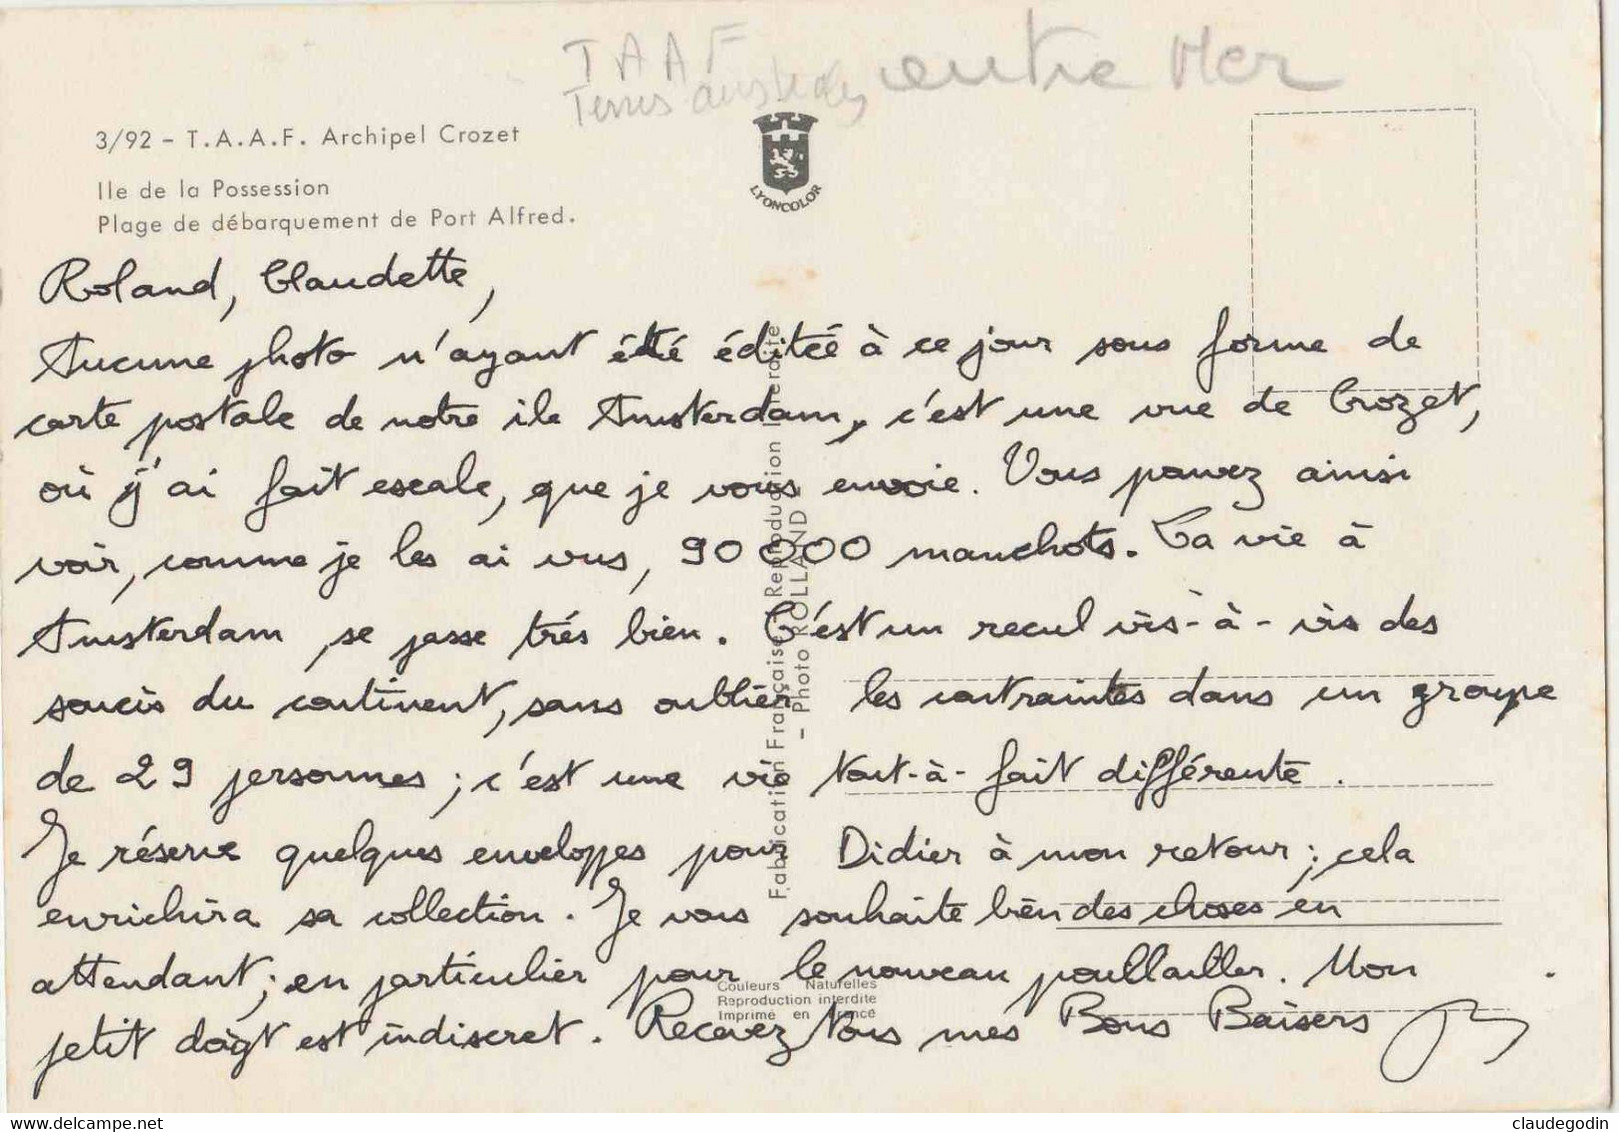 TAAF
Terres australes entre Mer
3/92 – T.A.A.F. Archipel Crozet
Ile de la Possession
Plage de débarquement de Port Alfred.
LYONCOLOR
Roland, Claudette,
Aucune photo n'ayant été éditée à ce jour sous forme de
carte postale de notre ile Amsterdam, c'est une vue de Crozet,
où j'ai fait escale, que je vous envoie. Vous pouvez ainsi
voir, comme je les ai vus, 90 000 manchots. La vie à
Amsterdam, se passe trés bien. C'est un recul vis-à-vis des
soucis du continent, sans oublier les contraintes dans un groupe
de 29 personnes ; c'est une vie tout-à-fait différente.
Je réserve quelques enveloppes pour Didier à mon retour ; cela
enrichira sa collection. Je vous souhaite bien des choses en
attendant ; en particulier pour le nouveau poullailler. Mon
petit doigt est indiscret. Recevez tous mes Bons Baisers
Fabrication Française - Reproduction interdite
– Photo ROLLAND
Couleurs Naturelles
Reproduction interdite
Imprimé en France
delcampe.net
claudegodin